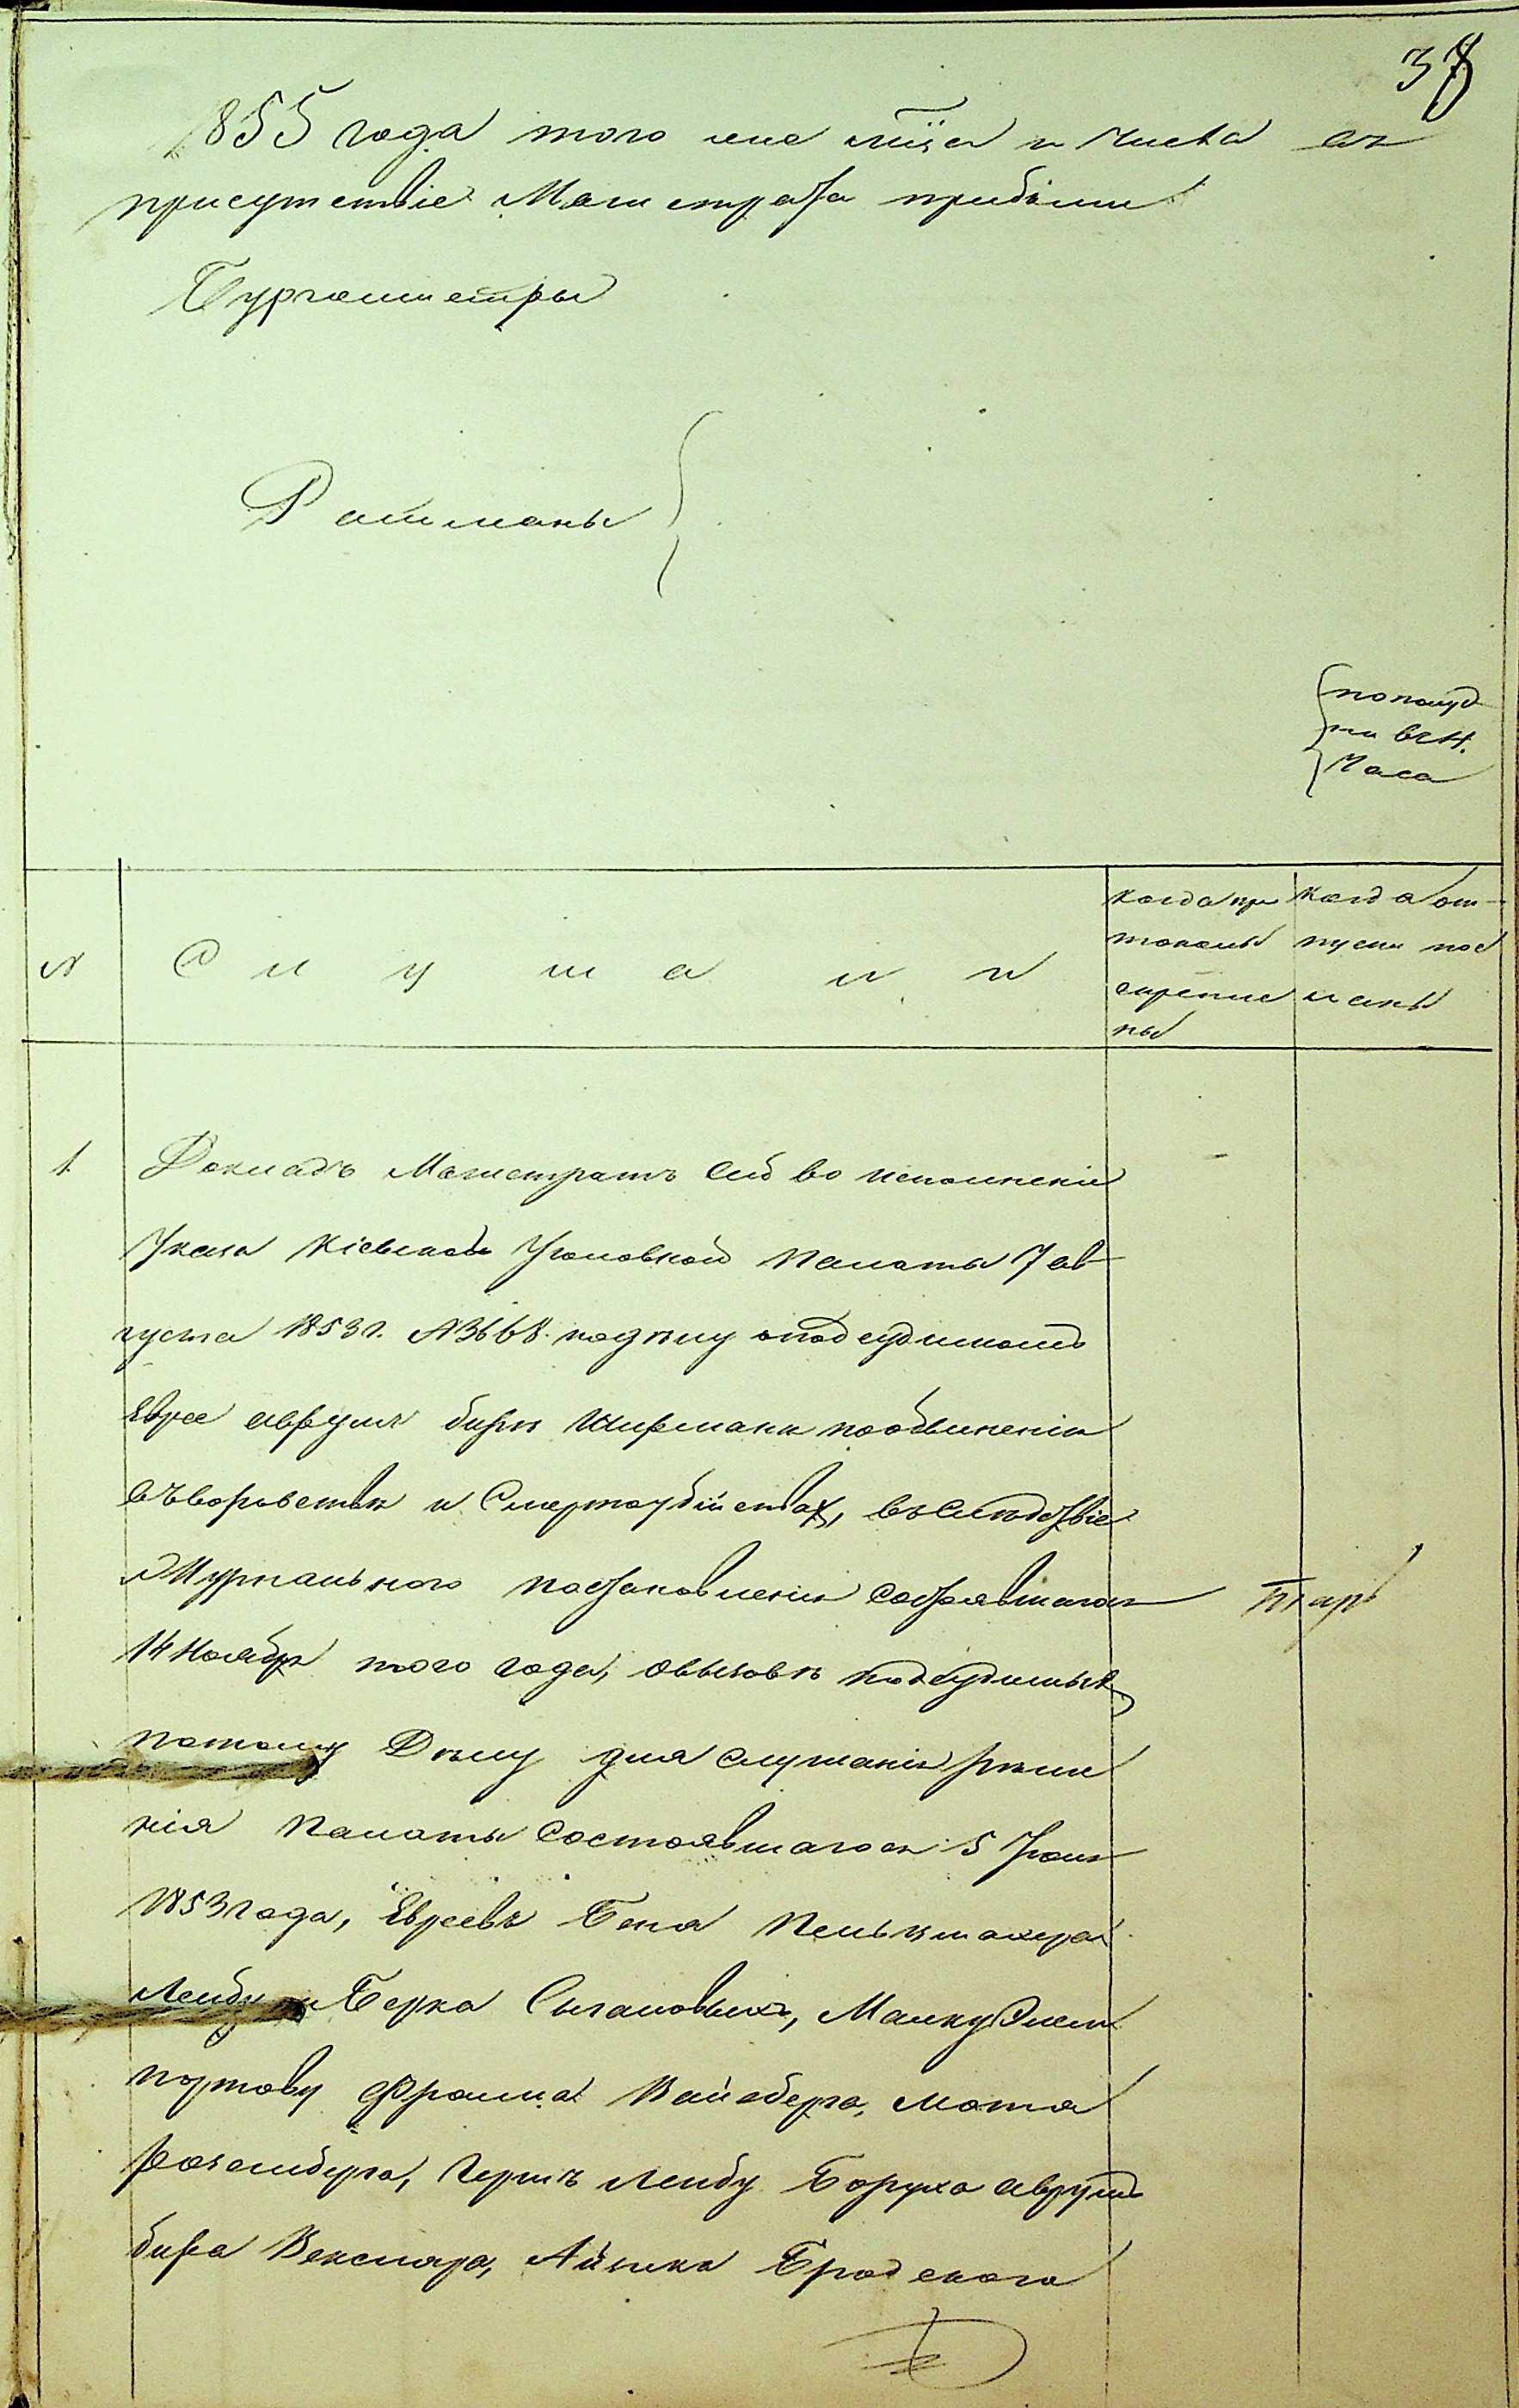 38
1855 года того же м-ца и числа въ
присутствіе Магистрата прибыли
Бургомистры
Ратманы
пополуд
ни въ 4.
Часа
№
Слушали
когда про
токолы
скрепле
ны
когда от-
пуски пос
ланы
1
Докладъ Магистратъ сей во исполненіе
Указа Кіевской Уголовной Палаты 7 ав
густа 1853 г. № 3668 по делу о подсудимомъ
Еврее Аврумъ Бере Шифманъ по обвиненію
въ воровстве и смертоубійствах, въ следствіе
Журнальнаго постановленія состоявшагося
14 Ноября того года, о вызове подсудимыхъ
по тому Делу для слушанія реше
нія Палаты состоявшагося 5 Іюня
1853 года, Евреевъ Беня
Лейбу и Берка Сигаловыхъ, Малку
Фроима Вайсберга, Мотя
Розенберга, Гершъ Лейбу Боруха Аврумъ
Бера Векслера, Айзика Бродского